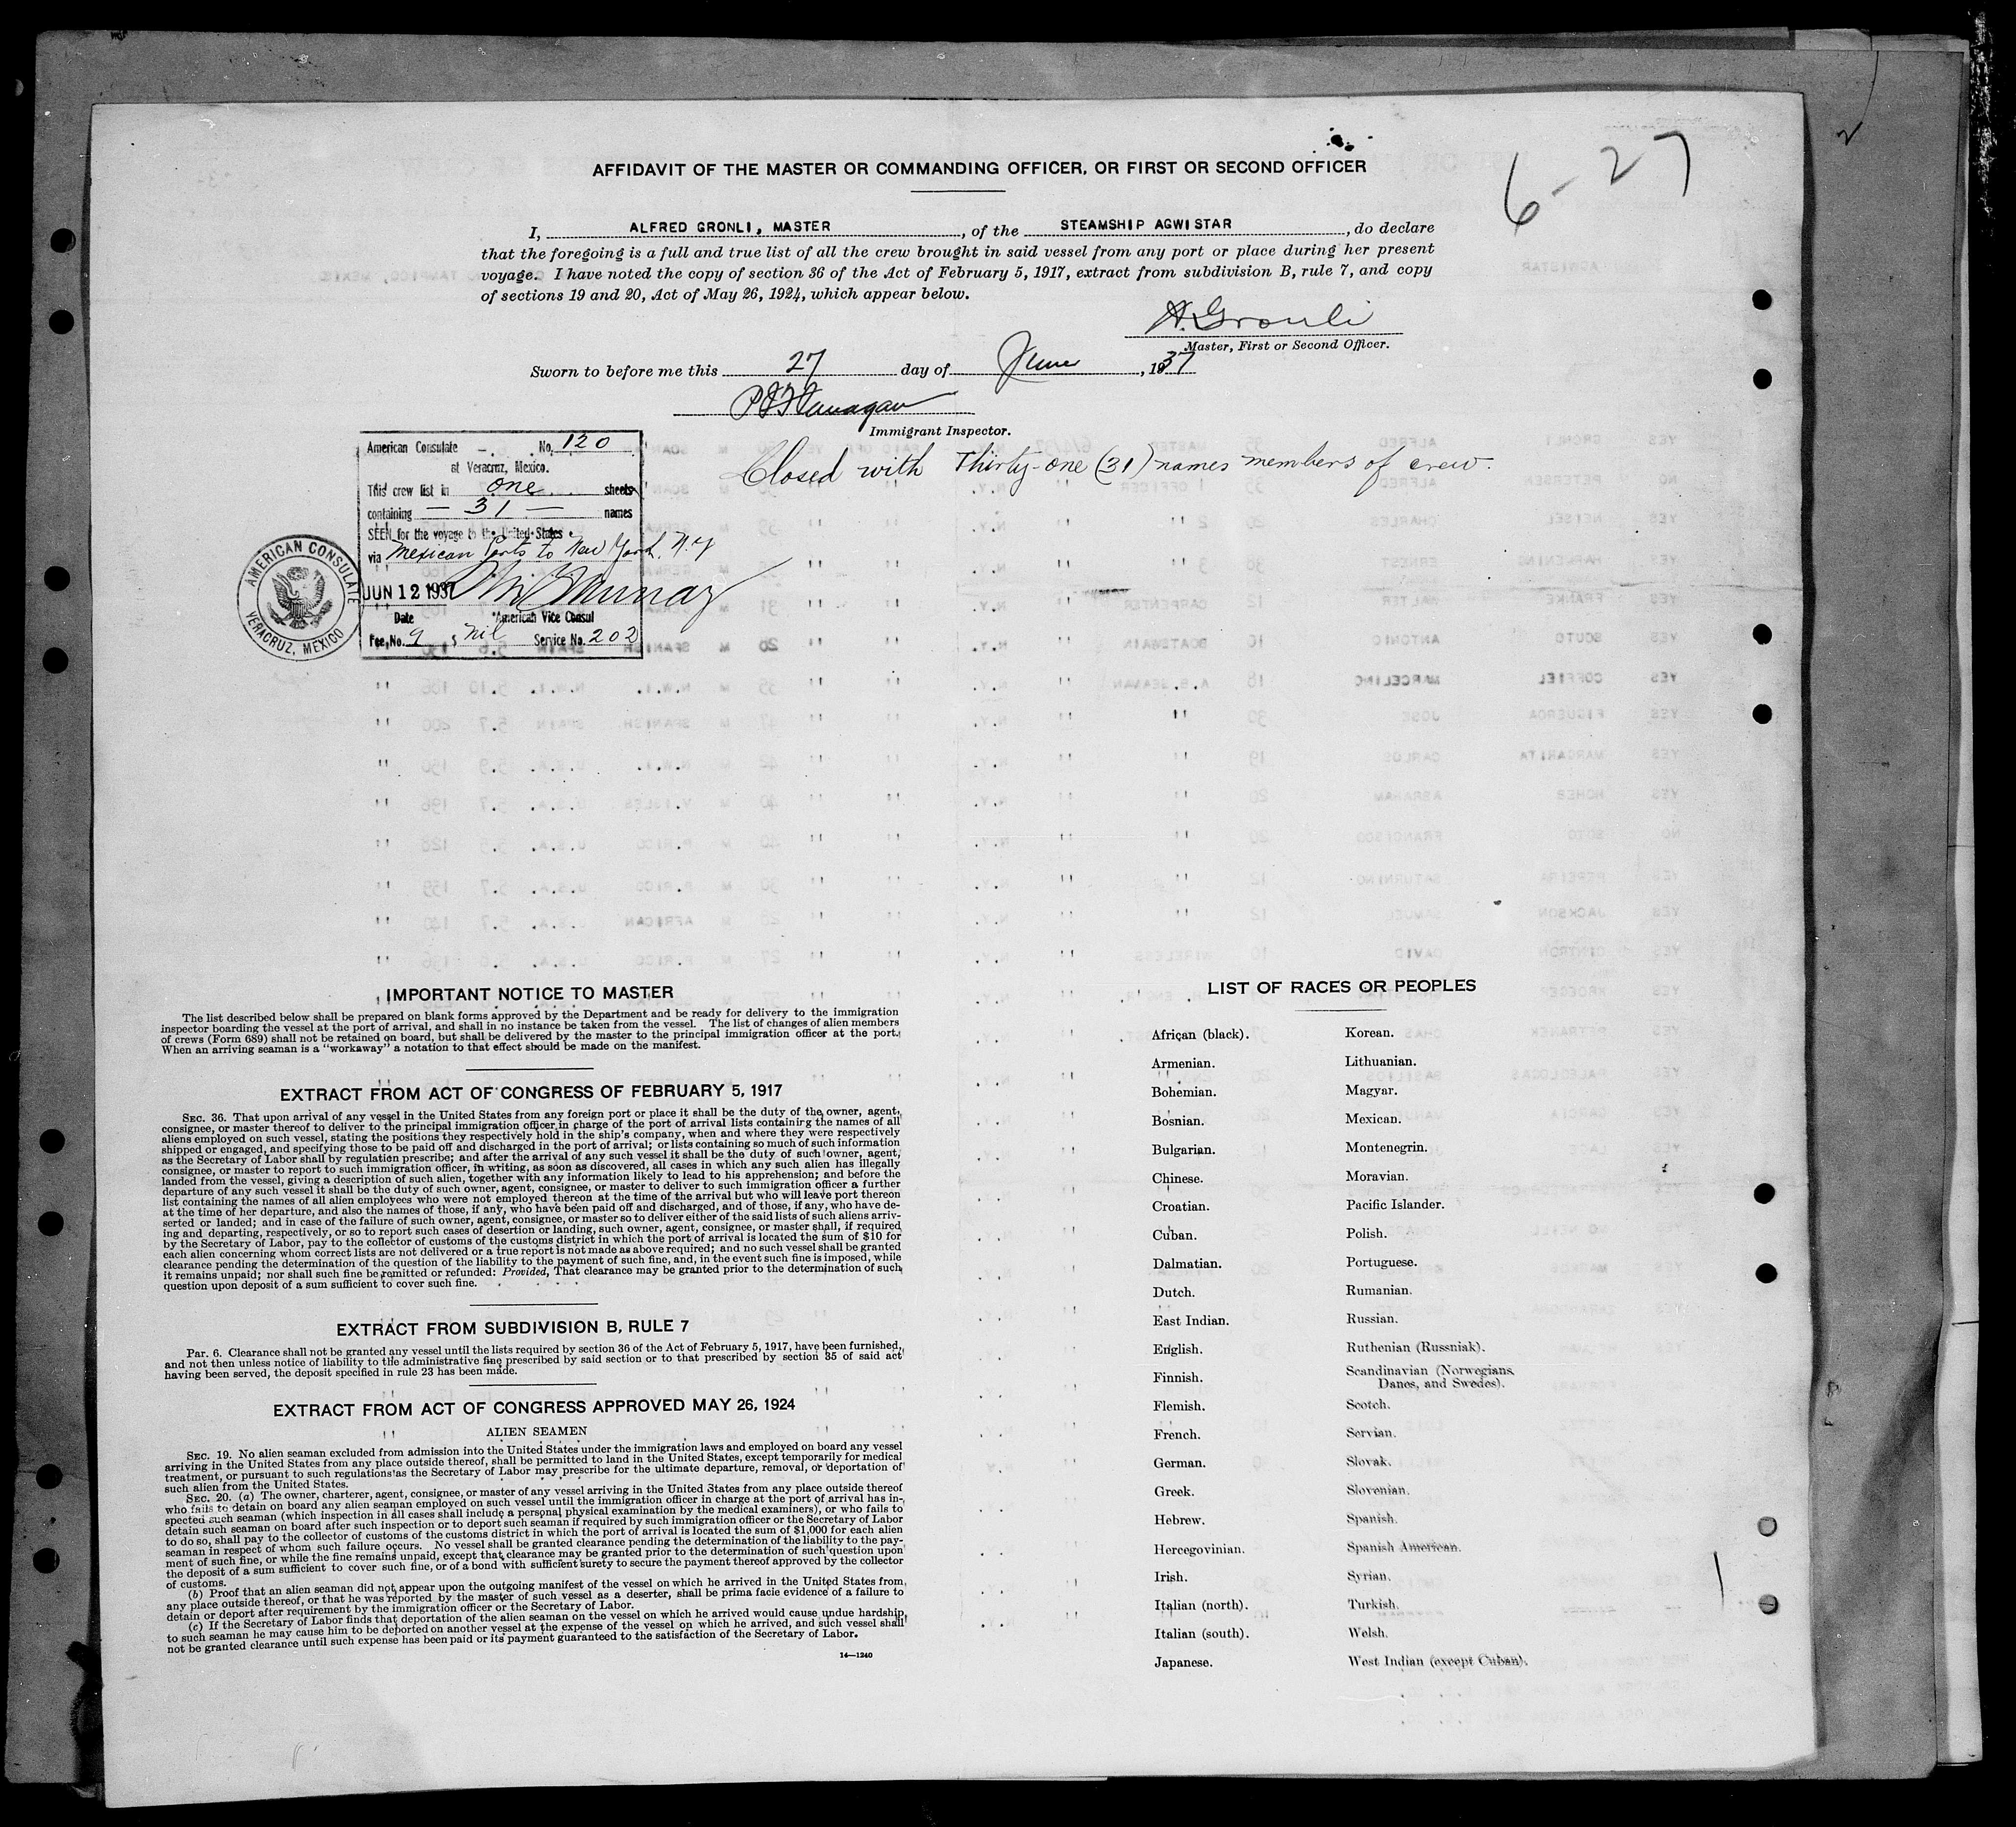 6-27
AFFIDAVIT OF THE MASTER OR COMMANDING OFFICER, OR FIRST OR SECOND OFFICER
I, ALFRED GRONLI, MASTER, of the STEAMSHIP AGWISTAR, do declare
that the foregoing is a full and true list of all the crew brought in said vessel from any port or place during her present
voyage. I have noted the copy of section 36 of the Act of February 5, 1917, extract from subdivision B, rule 7, and copy
of sections 19 and 20, Act of May 26, 1924, which appear below.
A. Gronli
Master, First or Second Officer.
Sworn to before me this 27 day of June, 1937
P J Flanagan
Immigrant Inspector.
Closed with Thirty-one (31) names members of crew.
American Consulate No. 120
at Veracruz, Mexico.
This crew list in one sheets
containing — 31 — names
SEEN for the voyage to the United States
via Mexican Ports to New York, N.Y
JUN 12 1937
Date American Vice Consul
Fee No. 9 $ nil Service No. 202
AMERICAN CONSULATE
VERACRUZ, MEXICO
IMPORTANT NOTICE TO MASTER
The list described below shall be prepared on blank forms approved by the Department and be ready for delivery to the immigration
inspector boarding the vessel at the port of arrival, and shall in no instance be taken from the vessel. The list of changes of alien members
of crews (Form 689) shall not be retained on board, but shall be delivered by the master to the principal immigration officer at the port.
When an arriving seaman is a "workaway" a notation to that effect should be made on the manifest.
EXTRACT FROM ACT OF CONGRESS OF FEBRUARY 5, 1917
SEC. 36. That upon arrival of any vessel in the United States from any foreign port or place it shall be the duty of the owner, agent,
consignee, or master thereof to deliver to the principal immigration officer in charge of the port of arrival lists containing the names of all
aliens employed on such vessel, stating the positions they respectively hold in the ship's company, when and where they were respectively
shipped or engaged, and specifying those to be paid off and discharged in the port of arrival; or lists containing so much of such information
as the Secretary of Labor shall by regulation prescribe; and after the arrival of any such vessel it shall be the duty of such owner, agent,
consignee, or master to report to such immigration officer, in writing, as soon as discovered, all cases in which any such alien has illegally
landed from the vessel, giving a description of such alien, together with any information likely to lead to his apprehension; and before the
departure of any such vessel it shall be the duty of such owner, agent, consignee, or master to deliver to such immigration officer a further
list containing the names of all alien employees who were not employed thereon at the time of the arrival but who will leave port thereon
at the time of her departure, and also the names of those, if any, who have been paid off and discharged, and of those, if any, who have de-
serted or landed; and in case of the failure of such owner, agent, consignee, or master so to deliver either of the said lists of such aliens arriv-
ing and departing, respectively, or so to report such cases of desertion or landing, such owner, agent, consignee, or master shall, if required
by the Secretary of Labor, pay to the collector of customs of the customs district in which the port of arrival is located the sum of $10 for
each alien concerning whom correct lists are not delivered or a true report is not made as above required; and no such vessel shall be granted
clearance pending the determination of the question of the liability to the payment of such fine, and, in the event such fine is imposed, while
it remains unpaid; nor shall such fine be remitted or refunded: Provided, That clearance may be granted prior to the determination of such
question upon deposit of a sum sufficient to cover such fine.
EXTRACT FROM SUBDIVISION B, RULE 7
PAR. 6. Clearance shall not be granted any vessel until the lists required by section 36 of the Act of February 5, 1917, have been furnished,
and not then unless notice of liability to the administrative fine prescribed by said section or to that prescribed by section 35 of said act
having been served, the deposit specified in rule 23 has been made.
EXTRACT FROM ACT OF CONGRESS APPROVED MAY 26, 1924
ALIEN SEAMEN
SEC. 19. No alien seaman excluded from admission into the United States under the immigration laws and employed on board any vessel
arriving in the United States from any place outside thereof, shall be permitted to land in the United States, except temporarily for medical
treatment, or pursuant to such regulations as the Secretary of Labor may prescribe for the ultimate departure, removal, or deportation of
such alien from the United States.
SEC. 20. (a) The owner, charterer, agent, consignee, or master of any vessel arriving in the United States from any place outside thereof
who fails to detain on board any alien seaman employed on such vessel until the immigration officer in charge at the port of arrival has in-
spected such seaman (which inspection in all cases shall include a personal physical examination by the medical examiners), or who fails to
detain such seaman on board after such inspection or to deport such seaman if required by such immigration officer or the Secretary of Labor
to do so, shall pay to the collector of customs of the customs district in which the port of arrival is located the sum of $1,000 for each alien
seaman in respect of whom such failure occurs. No vessel shall be granted clearance pending the determination of the liability to the pay-
ment of such fine, or while the fine remains unpaid, except that clearance may be granted prior to the determination of such question upon
the deposit of a sum sufficient to cover such fine, or of a bond with sufficient surety to secure the payment thereof approved by the collector
of customs.
(b) Proof that an alien seaman did not appear upon the outgoing manifest of the vessel on which he arrived in the United States from
any place outside thereof, or that he was reported by the master of such vessel as a deserter, shall be prima facie evidence of a failure to
detain or deport after requirement by the immigration officer or the Secretary of Labor.
(c) If the Secretary of Labor finds that deportation of the alien seaman on the vessel on which he arrived would cause undue hardship
to such seaman he may cause him to be deported on another vessel at the expense of the vessel on which he arrived, and such vessel shall
not be granted clearance until such expense has been paid or its payment guaranteed to the satisfaction of the Secretary of Labor.
14—1240
LIST OF RACES OR PEOPLES
African (black).
Armenian.
Bohemian.
Bosnian.
Bulgarian.
Chinese.
Croatian.
Cuban.
Dalmatian.
Dutch.
East Indian.
English.
Finnish.
Flemish.
French.
German.
Greek.
Hebrew.
Hercegovinian.
Irish.
Italian (north).
Italian (south).
Japanese.
Korean.
Lithuanian.
Magyar.
Mexican.
Montenegrin.
Moravian.
Pacific Islander.
Polish.
Portuguese.
Rumanian.
Russian.
Ruthenian (Russniak).
Scandinavian (Norwegians,
Danes, and Swedes).
Scotch.
Servian.
Slovak.
Slovenian.
Spanish.
Spanish American.
Syrian.
Turkish.
Welsh.
West Indian (except Cuban).